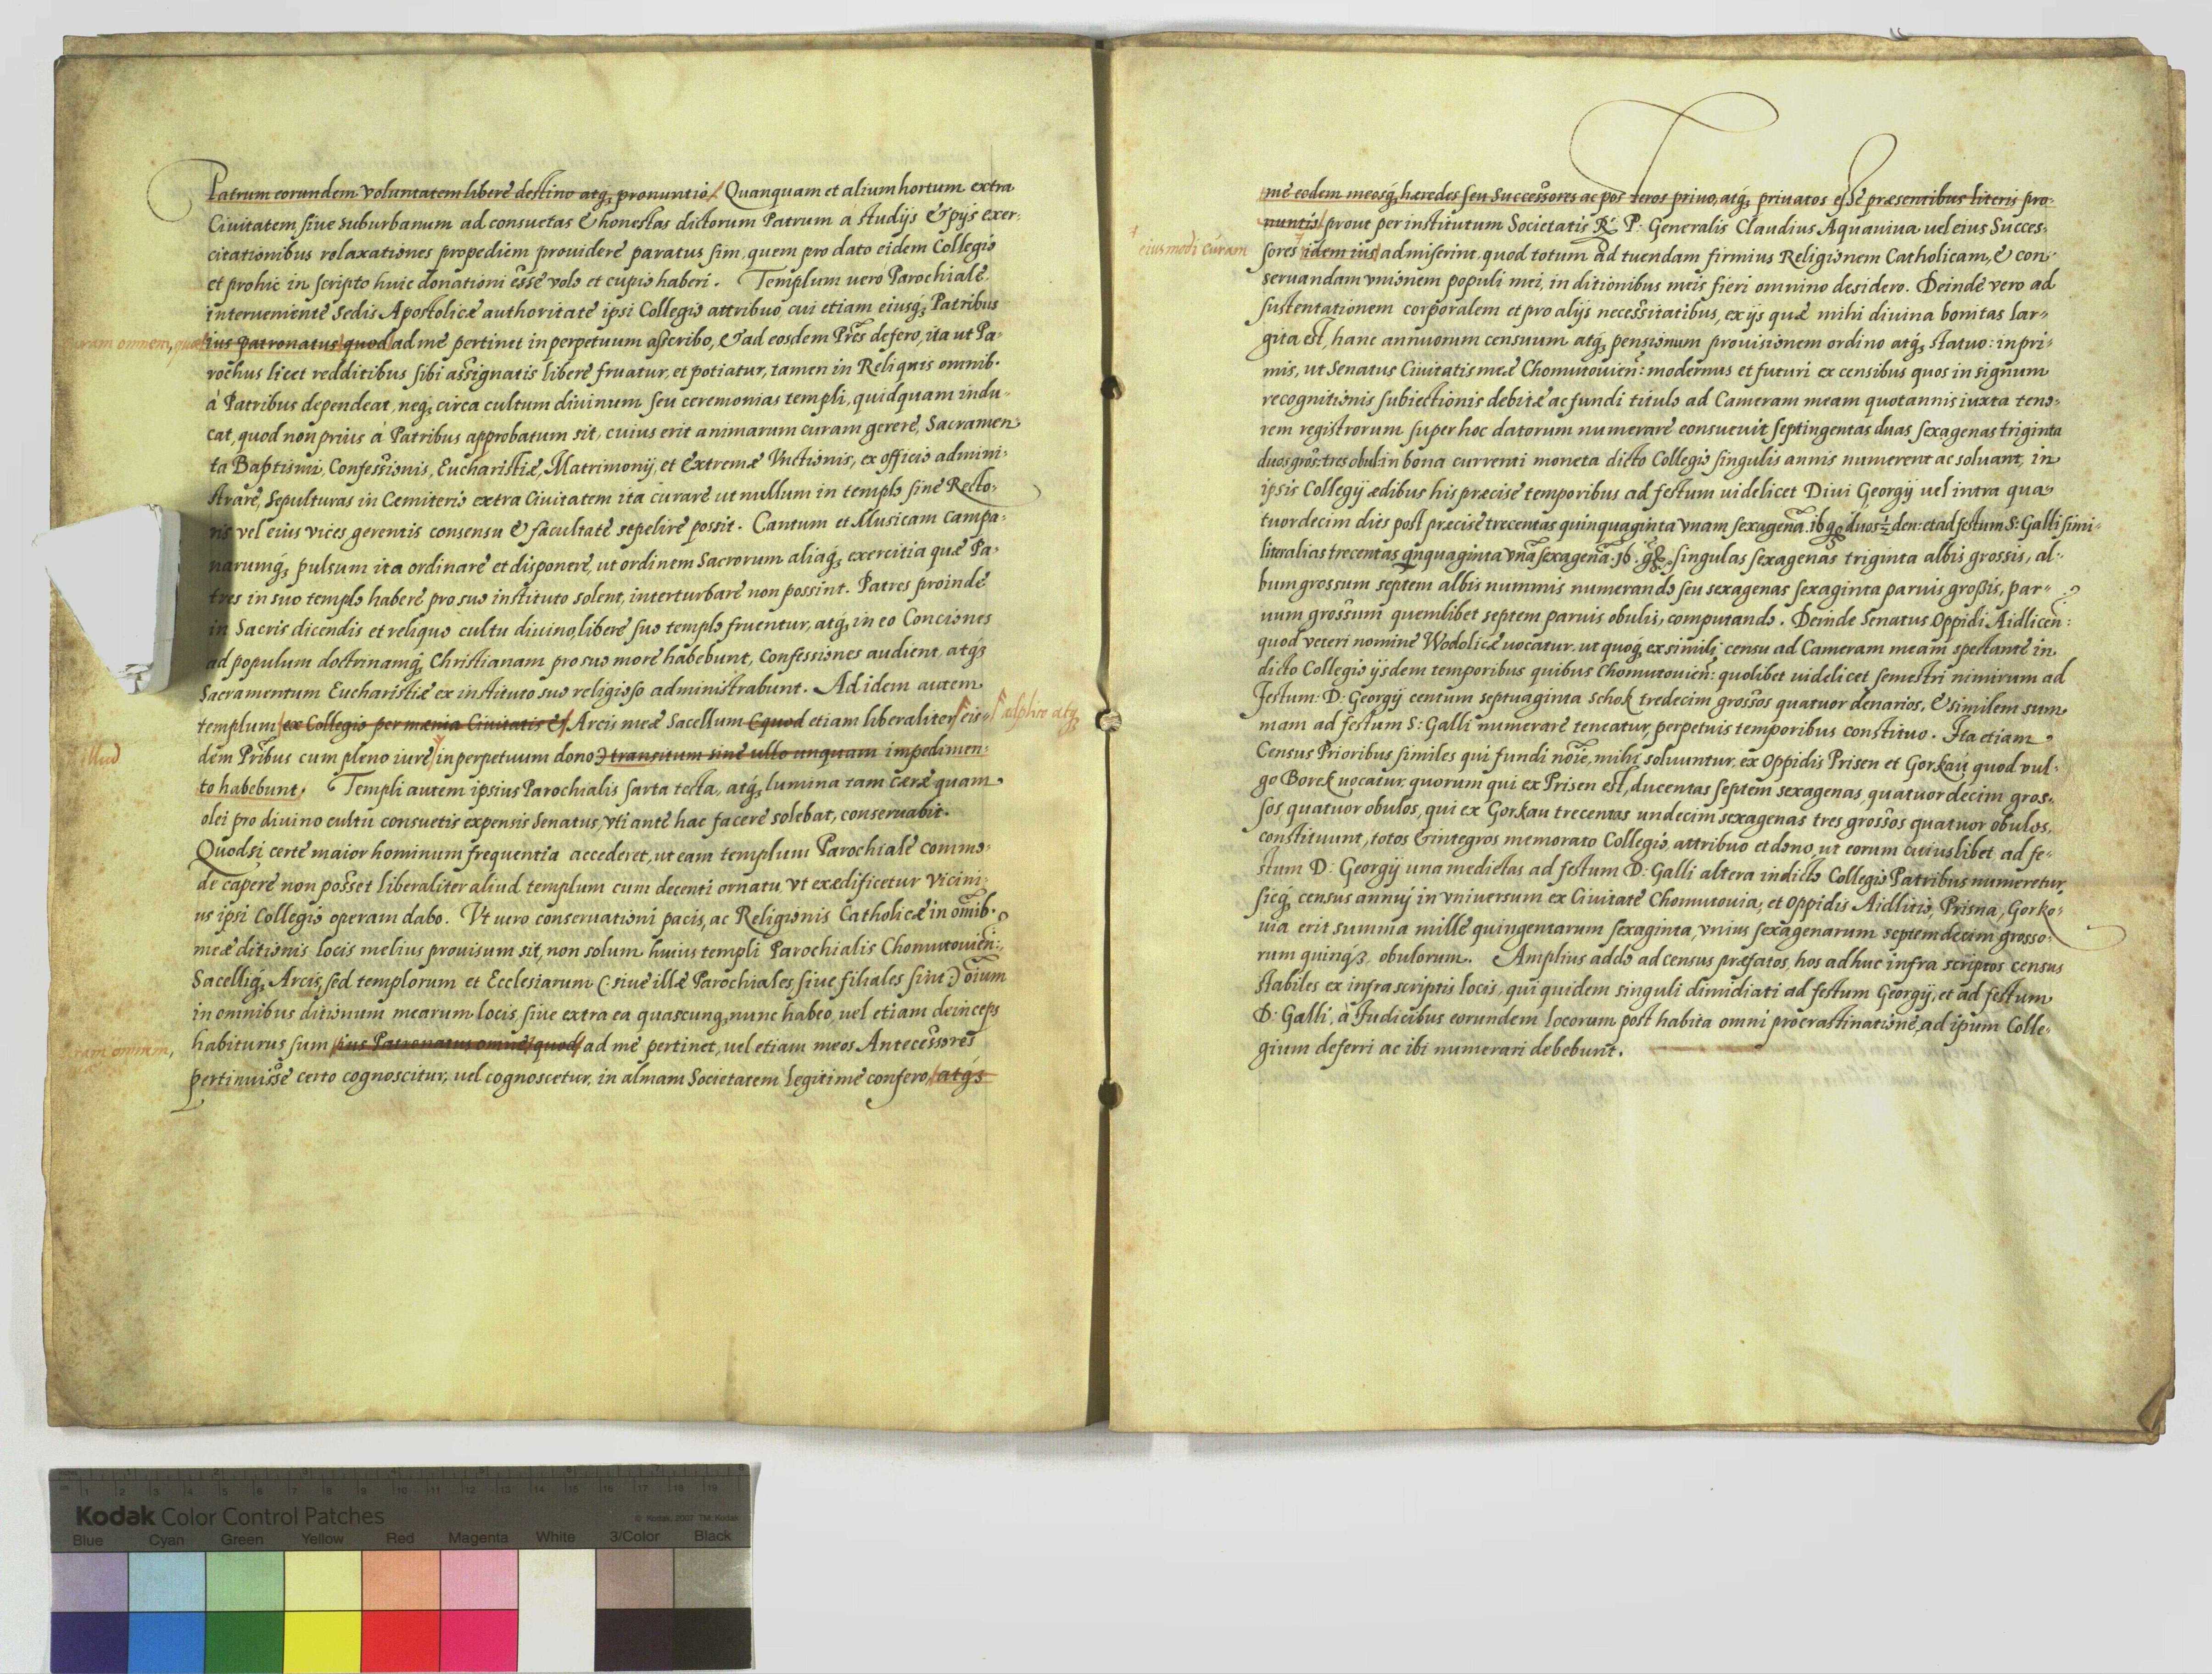 Patrum eorundem voluntatem liberè destino atq; pronuntio. Quanquam et alium hortum extra
Civitatem siue suburbanum ad consuetas & honestas dictorum Patrum á studijs & pijs exer-
citationibus relaxationes propediem prouidere paratus sim, quem pro dato eidem Collegio
et pro hic in scripto huic donationi esse volo et cupio haberi. Templum uero Parochiale
interueniente Sedis Apostolicæ authoritate ipsi Collegio attribuo, cui etiam eiusq; Patribus
curam omnem, quæ
ius patronatus quod ad me pertinet in perpetuum ascribo, & ad eosdem Pres defero, ita ut Pa-
rochus licet redditibus sibi assignatis liberè fruatur, et potiatur, tamen in Reliquis omnib.
á Patribus dependeat, neq; circa cultum diuinum seu ceremonias templi, quidquam indu-
cat, quod non prius á Patribus approbatum sit, cuius erit animarum curam gerere, Sacramen
ta Baptismi, Confessionis, Eucharistiæ, Matrimonij, et Extremæ Vnctionis, ex officio admini-
strare, Sepulturas in Cœmiterio extra Civitatem ita curare ut nullum in templo sine Recto-
ris vel eius vices gerentis consensu & facultate sepelire possit. Cantum et Musicam campa-
narumq; pulsum ita ordinare et disponere, ut ordinem Sacrorum aliaq; exercitia quæ Pa-
tres in suo templo habere pro suo instituto solent, interturbare non possint. Patres proinde
in Sacris dicendis et reliquo cultu diuino, libere suo templo fruentur, atq; in eo Conciones
ad populum doctrinamq; Christianam pro suo more habebunt, Confessiones audient, atq;
Sacramentum Eucharistiæ ex instituto suo religioso administrabunt. Ad idem autem
templum ex Collegio per mœnia Ciuitatis & Arcis meæ Sacellum (quod etiam liberaliter eis-
simplice atq;
illud
dem Pribus cum pleno iure in perpetuum dono) transitum sine ullo unquam impedimen-
to habebunt. Templi autem ipsius Parochialis sarta tecta, atq; lumina tam ceræ quam
olei pro diuino cultu consuetis expensis Senatus, vti ante hac facere solebat, conseruabit.
Quodsi certè maior hominum frequentia accederet, ut eam templum Parochiale commo-
de capere non posset liberaliter aliud templum cum decenti ornatu, vt exædificetur vicini-
us ipsi Collegio operam dabo. Vt uero conseruationi pacis, ac Religionis Catholicæ in omib.
meæ ditionis locis melius prouisum sit, non solum huius templi Parochialis Chomutouien:
Sacelliq; Arcis, sed templorum et Ecclesiarum (siue illæ Parochiales, siue filiales sint) oium
in omnibus ditionum mearum locis, siue extra ea quascunq; nunc habeo, uel etiam deinceps
curam omnem,
habiturus sum ius Patronatus omne quod ad me pertinet, uel etiam meos Antecessores
pertinuisse certo cognoscitur, uel cognoscetur, in almam Societatem legitimè confero, atq;
me eodem meosq; heredes seu Successores ac posteros priuo, atq; priuatos esse præsentibus literis pro-
nuntio prout per institutum Societatis R. P. Generalis Claudius Aquauiua uel eius Succes-
eiusmodi curam
sores idem ius admiserint, quod totum ad tuendam firmius Religionem Catholicam, & con-
seruandam vnionem populi mei, in ditionibus meis fieri omnino desidero. Deinde vero ad
sustentationem corporalem et pro alijs necessitatibus, ex ijs quæ mihi diuina bonitas lar-
gita est, hanc annuorum censuum atq; pensionum prouisionem ordino atq; statuo: in pri-
mis, ut Senatus Ciuitatis meæ Chomutouien: modernus et futuri ex censibus quos in signum
recognitionis subiectionis debitæ ac fundi titulo ad Cameram meam quotannis iuxta teno-
rem registrorum super hoc datorum numerare consueuit septingentas duas sexagenas triginta
duos gros: tres obul: in bona currenti moneta dicto Collegio singulis annis numerent ac soluant, in
ipsis Collegij ædibus his præcise temporibus ad festum uidelicet Diui Georgij uel intra qua-
tuordecim dies post præcise trecentas quinquaginta vnam sexagena. 16 gr. duos ½ den: et ad festum S: Galli simi-
liter alias trecentas qnquaginta vna sexagena. 16. gr. singulas sexagenas triginta albis grossis, al-
bum grossum septem albis nummis numerando seu sexagenas sexaginta paruis grossis, par-
uum grossum quemlibet septem paruis obulis, computando. Deinde Senatus Oppidi Aidlicen:
quod veteri nomine Wodolicæ uocatur, ut quoq; ex simili censu ad Cameram meam spectante in
dicto Collegio ijsdem temporibus quibus Chomutouien: quolibet uidelicet semestri nimirum ad
Festum: D: Georgij centum septuaginta schok tredecim grossos quatuor denarios, & similem sum
mam ad festum S: Galli numerare teneatur, perpetuis temporibus constituo. Ita etiam
Census Prioribus similes qui fundi noie, mihi soluuntur, ex Oppidis Prisen et Gorkau quod vul-
go Borek uocatur, quorum qui ex Prisen est, ducentas septem sexagenas, quatuordecim gros-
sos quatuor obulos, qui ex Gorkau trecentas undecim sexagenas tres grossos quatuor obulos,
constituunt, totos & integros memorato Collegio, attribuo et dono, ut eorum cuiuslibet ad fe-
stum D: Georgij una medietas ad festum D: Galli altera in dicto Collegio Patribus numeretur,
sicq; census annuj in vniuersum ex Ciuitate Chomutouia, et Oppidis Aidlitio, Prisna, Gorko-
uia erit summa mille quingentarum sexaginta, vnius sexagenarum septemdecim grosso-
rum quinq; obulorum. Amplius addo ad census præfatos, hos adhuc infra scriptos census
stabiles ex infra scriptis locis, qui quidem singuli dimidiati ad festum Georgij, et ad festum
D: Galli, à Iudicibus eorundem locorum post habita omni procrastinatione, ad ipum Colle-
gium deferri ac ibi numerari debebunt.
Kodak Color Control Patches
© Kodak, 2007 TM: Kodak
Blue Cyan Green Yellow Red Magenta White 3/Color Black